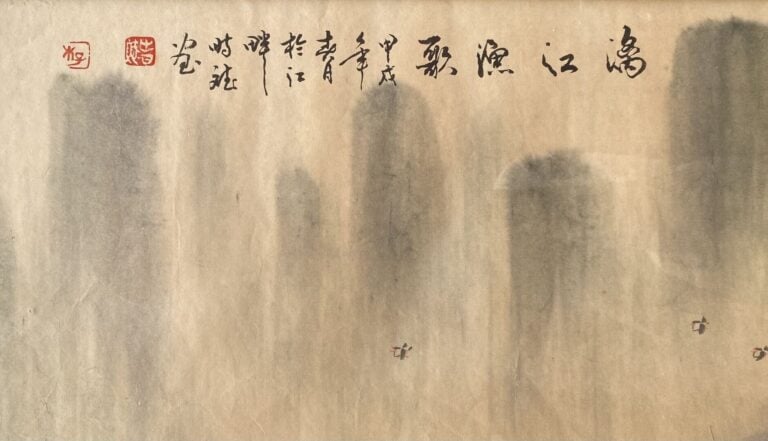 漓江漁歌
甲戌
年
春月
於江
畔
時
畫